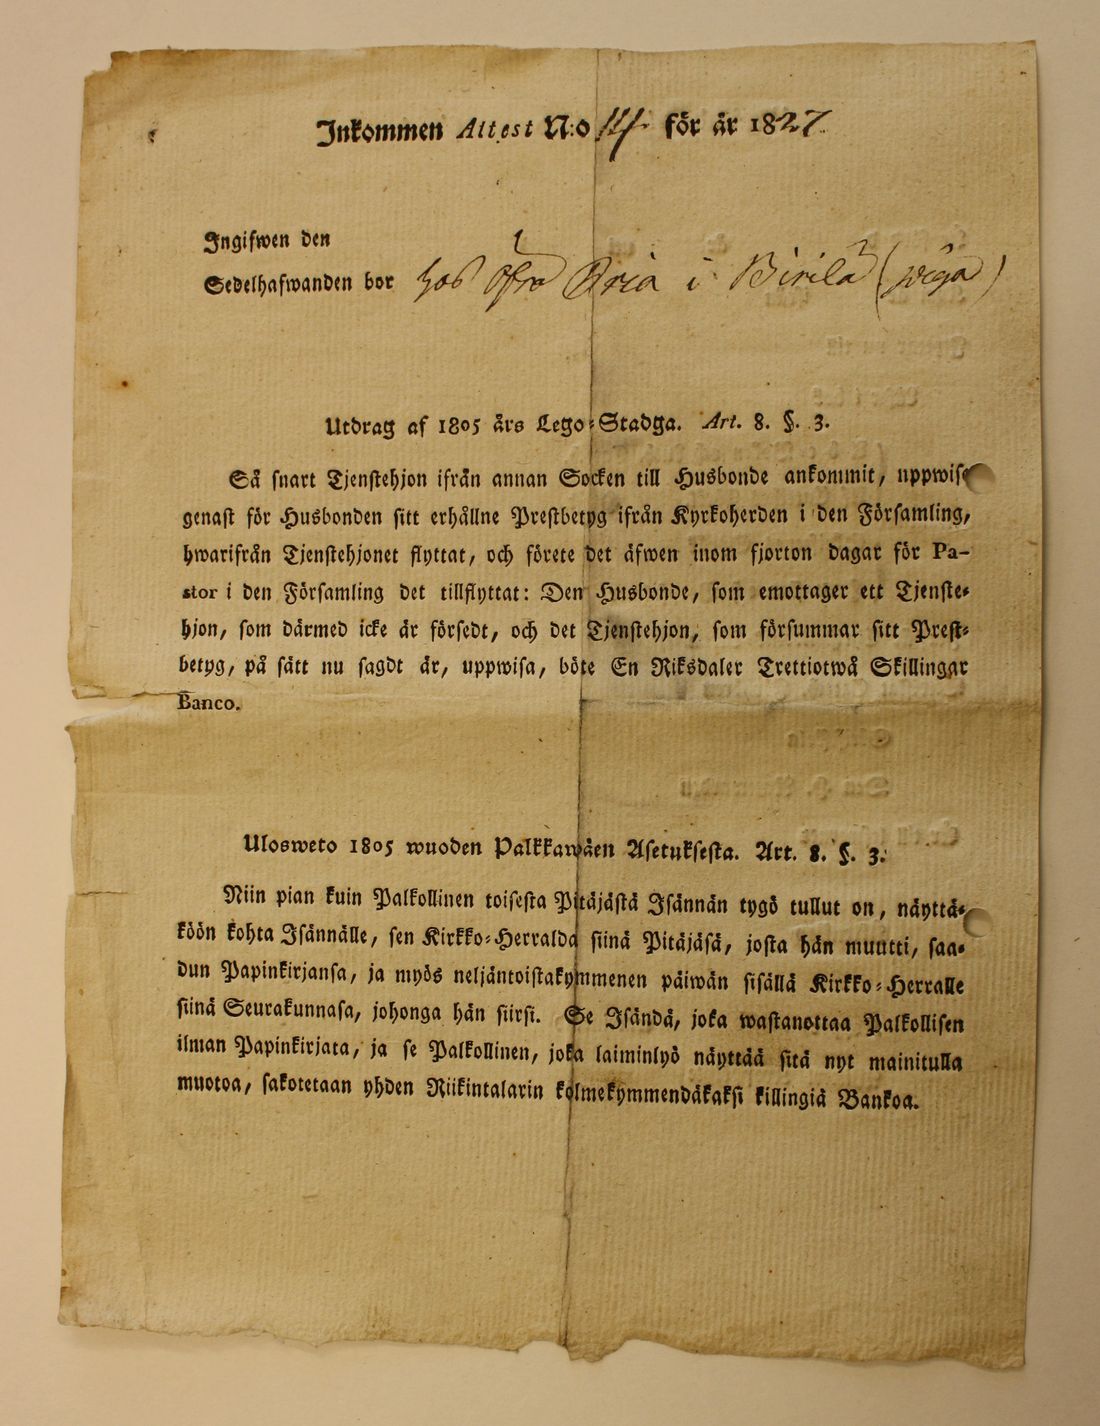 Inkommen Attest N:o 14. för år 1827.
Ingifwen den
Sedelhafwanden bor hos i Birilä (piga)
Utdrag af 1805 års Lego-Stadga. Art. 8. §. 3.
Så snart Tjenstehjon ifrån annan Socken till Husbonde ankommit, uppwise
genast för Husbonden sitt erhållne Prestbetyg ifrån Kyrkoherden i den Församling,
hwarifrån Tjenstehjonet flyttat, och förete det äfwen inom fjorton dagar för Pa-
stor i den Församling det tillflyttat: Den Husbonde, som emottager ett Tjenste-
hjon, som därmed icke är försedt, och det Tjenstehjon, som försummar sitt Prest-
betyg, på sätt nu sagdt är, uppwisa, böte En Riksdaler Trettiotwå Skillingar
Banco.
Ulosweto 1805 wuoden Palkkawäen Asetuksesta. Art. 8. §. 3.
Niin pian kuin Palkollinen toisesta Pitäjästä Isännän tygö tullut on, näyttä-
köön kohta Isännälle, sen Kirkko-Herralda siinä Pitäjäsä, josta hän muutti, saa-
dun Papinkirjansa, ja myös neljäntoistakymmenen päiwän sisällä Kirkko-Herralle
siinä Seurakunnasa, johonga hän siirsi. Se Isändä, joka wastanottaa Palkollisen
ilman Papinkirjata, ja se Palkollinen, joka laiminlyö näyttää sitä nyt mainitulla
muotoa, sakotetaan yhden Riikintalarin kolmekymmendäkaksi killingiä Bankoa.